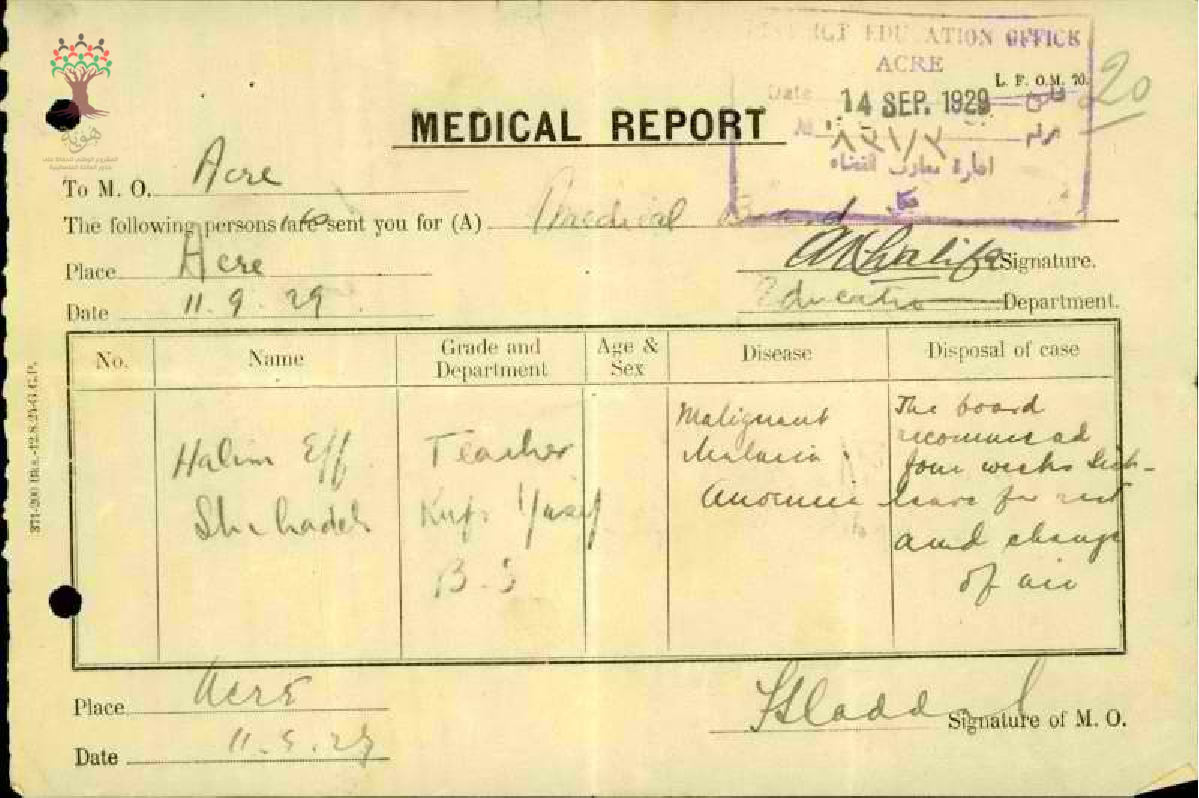 DISTRICT EDUCATION OFFICE
ACRE
L. F. O.M. 70.
20
Date 14 SEP. 1929
No ٨٢١/٧
ادارة معارف القضاء
عكا
هوية
MEDICAL REPORT
To M. O. Acre
The following persons is sent you for (A) Medical Board
Place Acre Signature.
Date 11.9.29 Education Department.
No. Name Grade and Department Age & Sex Disease Disposal of case
Halim Eff Shehadeh
Teacher
Kufr Yasif
B.S
Malignant
Malaria
Anoemia
The board
recommended
four weeks sick-
leave for rest
and change
of air
Place Acre
Signature of M. O.
Date 11.9.29